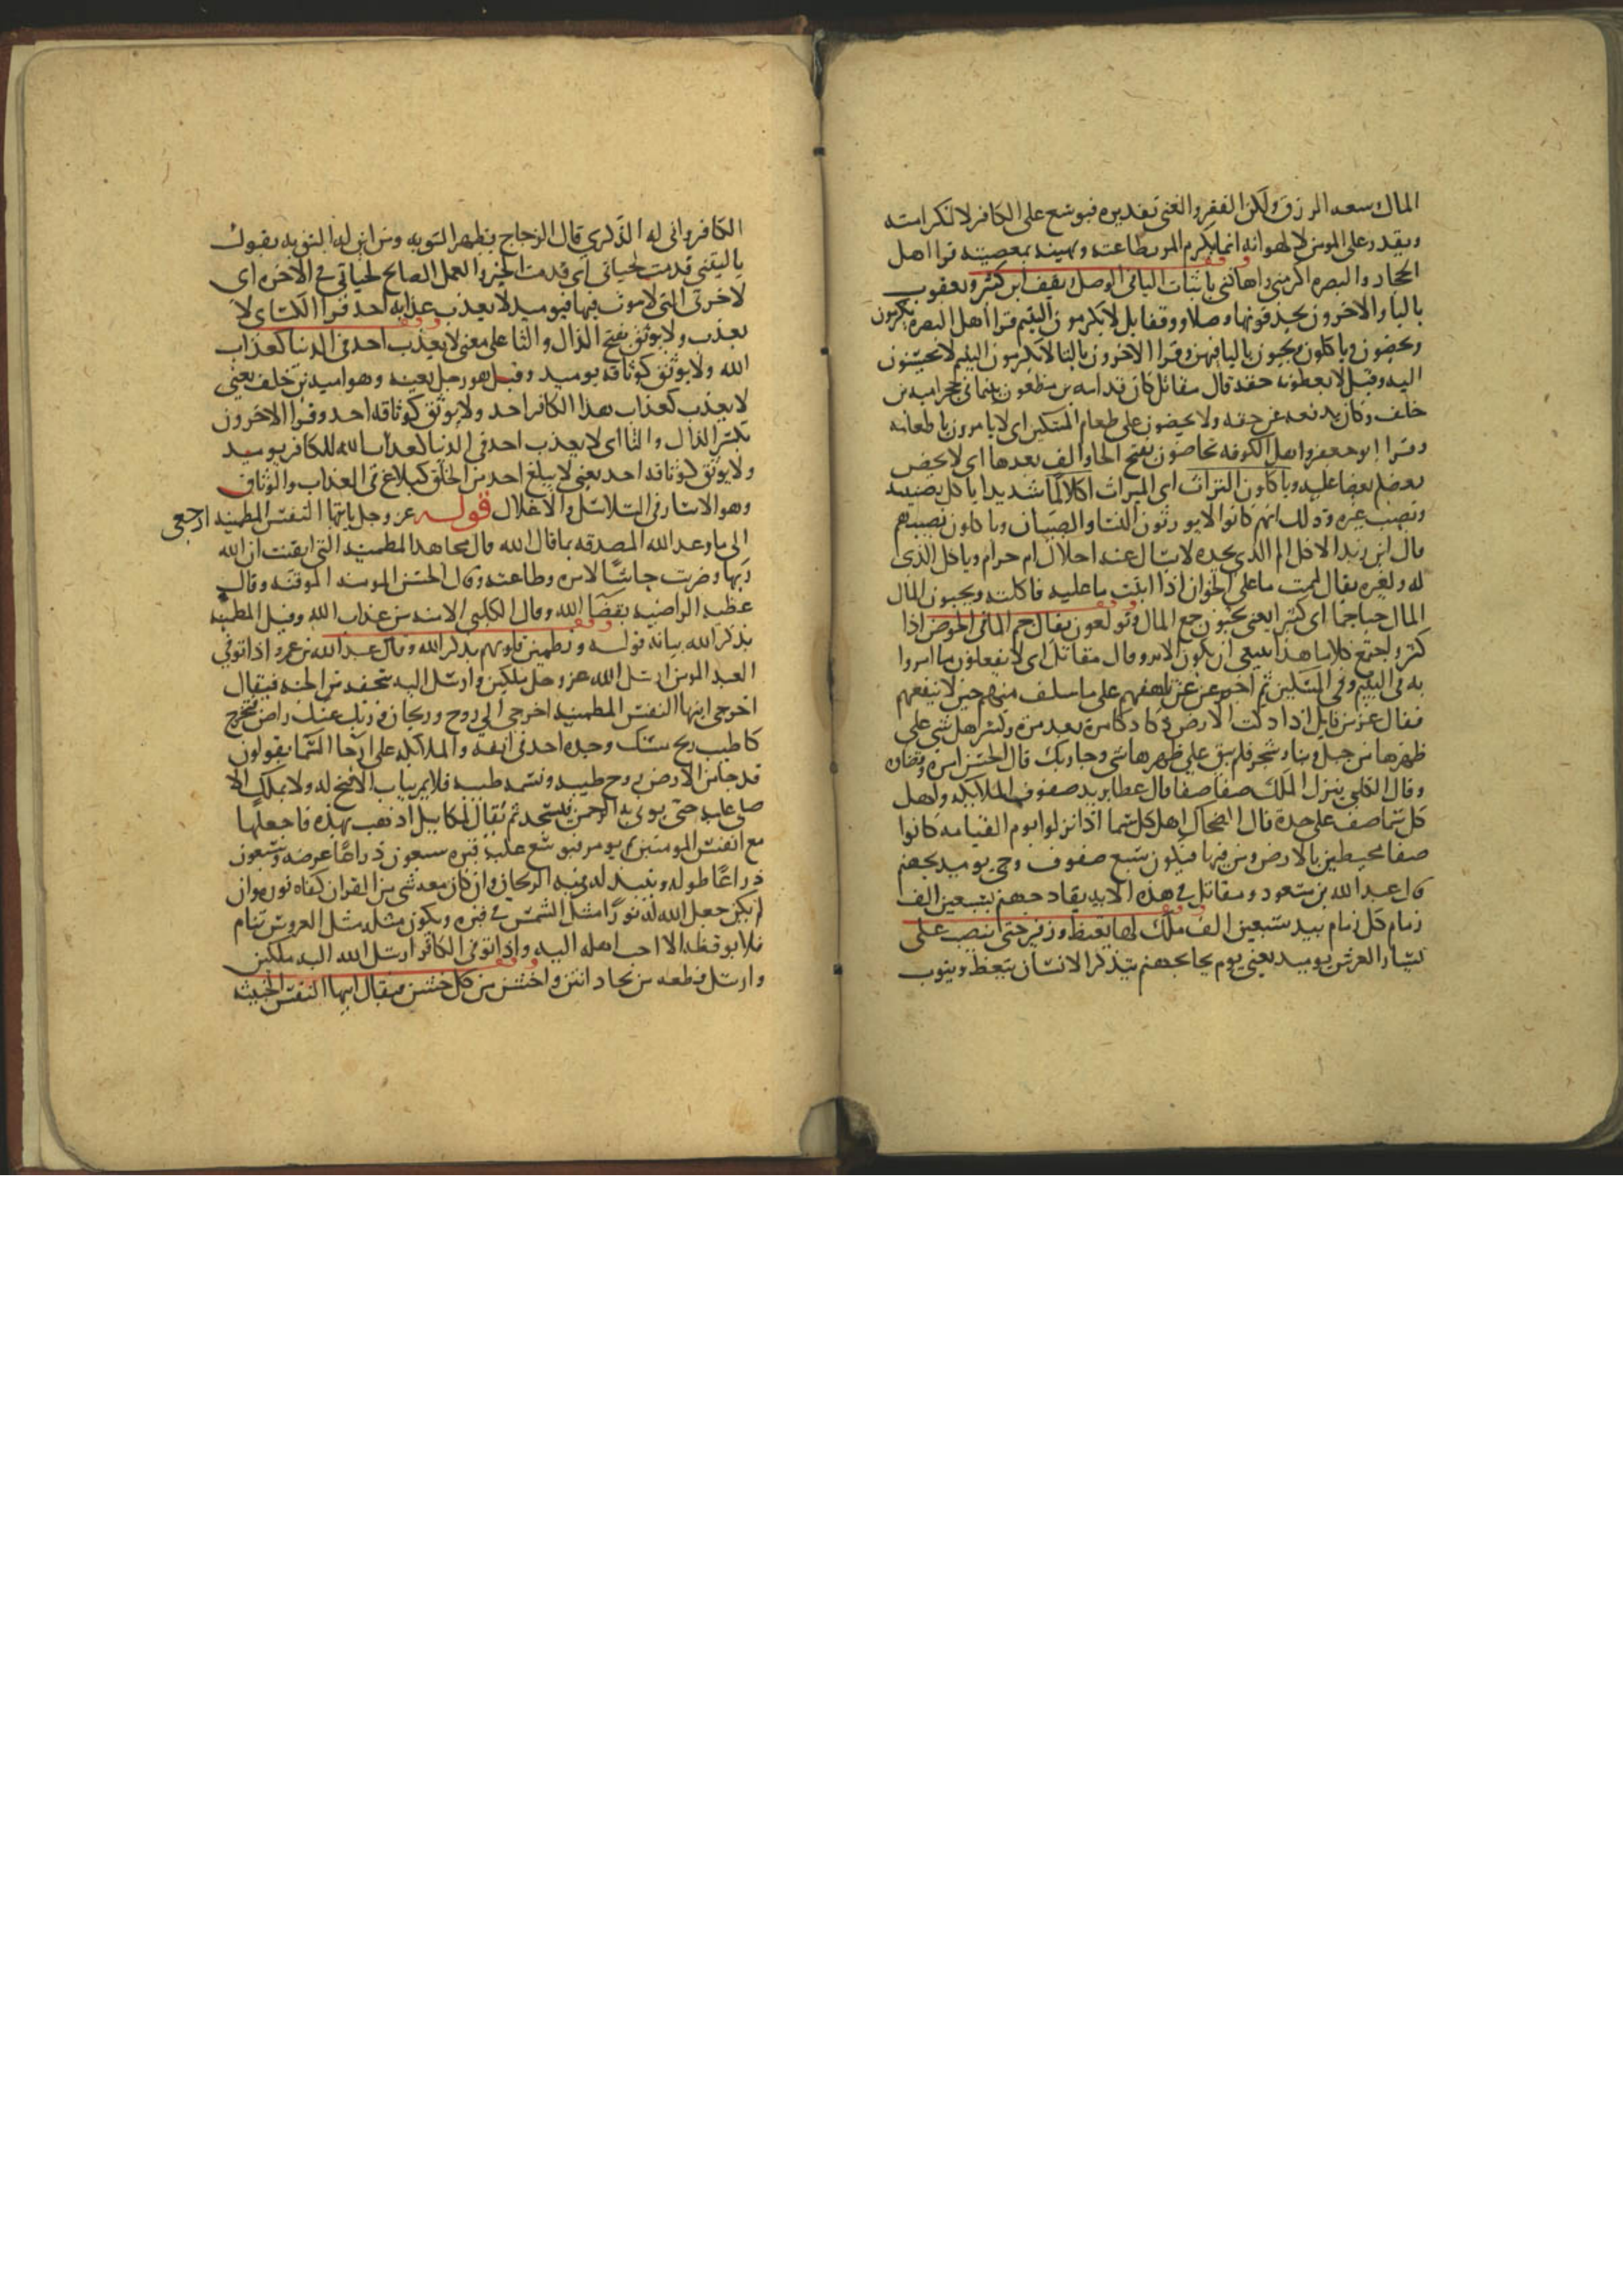 المال وسعه الرزق ولكن الفقر والغنى بتقديره فيوسع على الكافر لا لكرامته
ويقدر على المومن لا لهوانه انما يكرم المر بطاعته ويهينه بمعصيته قرا اهل
الحجاز والبصره اكرمني واهانني باثبات اليا في الوصل ويقف ابن كثير ويعقوب
باليا والاخرون يحذفونها وصلا ووقفا بل لا يكرمون اليتيم قرا اهل البصره يكرمون
ويحضون وياكلون ويحبون باليا فيهن وقرا الاخرون بالتا لا تكرمون اليتيم لا تحسنون
اليه وقيل لا يعطونه حقه قال مقاتل كان قدامه بن مظعون يتيما في حجر اميه بن
خلف وكان يدفعه عن حقه ولا يحضون على طعام المسكين اى لا يامرون باطعامه
وقرا ابو جعفر واهل الكوفه تحاضون بفتح الحا والف بعدها اى لا يحض
بعضهم بعضا عليه وياكلون التراث اى الميراث اكلا لما شديدا ياكل نصيبه
ونصيب غيره وذلك انهم كانوا لا يورثون النسا والصبيان وياكلون نصيبهم
قال ابن زيد الاكل اللم الذى يجده لا يسال عنه احلال ام حرام وياكل الذى
له ولغيره يقال لممت ما على الخوان اذا اتيت ما عليه فاكلته ويحبون المال
المال حبا جما اى كثيرا يعنى يحبون جمع المال ويولعون يقال جم الما فى الحوض اذا
كثر واجتمع كلا ما هذا ينبغى ان يكون الامر وقال مقاتل اى لا يفعلون ما امروا
به فى اليتيم وفى المسكين ثم اخبر عن تلهفهم على ما سلف منهم حين لا ينفعهم
فقال عز من قايل اذا دكت الارض دكا دكا مره بعد مره وكسر كل شى على
ظهرها من جبل وبنا وشجر فلم يبق على ظهرها شى وجا ربك قال الحسن امره وقضاه
وقال الكلبى ينزل الملك صفا صفا قال عطا يريد صفوف الملايكه واهل
كل سما صف على حدة قال الضحاك اهل كل سما اذا نزلوا يوم القيامه كانوا
صفا محيطين بالارض ومن فيها فيكون سبع صفوف وجى يوميد بجهنم
قال عبد الله بن مسعود ومقاتل فى هذه الايه يقاد جهنم بسبعين الف
زمام كل زمام بيد سبعين الف ملك لها تغيظ وزفير حتى تنصب على
يسار العرش يوميد يعنى يوم يجا بجهنم يتذكر الانسان يتعظ ويتوب
الكافر وانى له الذكرى قال الزجاج يظهر التوبه ومن اين له التوبه يقول
ياليتنى قدمت لحياتى اى قدمت الخير والعمل الصالح لحياتى فى الاخره اى
لاخرتى التى لا موت فيها فيوميد لا يعذب عذابه احد قرا الكساى لا
يعذب ولا يوثق بفتح الذال والثا على معنى لا يعذب احد فى الدنيا كعذاب
الله ولا يوثق كوثاقه يوميد وقيل هو رجل بعينه وهو اميه بن خلف يعنى
لا يعذب كعذاب هذا الكافر احد ولا يوثق كوثاقه احد وقرا الاخرون
بكسر الذال والثا اى لا يعذب احد فى الدنيا كعذاب الله للكافر يوميد
ولا يوثق كوثاقه احد يعنى لا يبلغ احد من الخلق كبلاغ فى العذاب والوثاق
وهو الاسار فى السلاسل والاغلال قوله عز وجل ياايتها النفس المطمينه ارجعى
الى ما وعد الله المصدقه بما قال الله قال مجاهد المطمينه التى ايقنت ان الله
ربها وضربت جاشا لامره وطاعته وقال الحسن المومنه الموقنه وقال
عطيه الراضيه بقضا الله وقال الكلبى الامنه من عذاب الله وقيل المطمينه
بذكر الله بيانه قوله وتطمين قلوبهم بذكر الله وقال عبد الله بن عمرو اذا توفى
العبد المومن ارسل الله عز وجل ملكين وارسل اليه بتحفه من الجنه فيقال
اخرجى ايتها النفس المطمينه اخرجى الى روح وريحان وربك عنك راض فتخرج
كاطيب ريح مسك وجده احد فى انفه والملايكه على ارجا السما يقولون
قد جا من الارض روح طيبه ونسمه طيبه فلا يمر بباب الا فتح له ولا بملك الا
صلى عليه حتى يوتى به الرحمن فتسجد ثم يقال لميكاييل اذهب بهذه فاجعلها
مع انفس المومنين ثم يومر فيوسع عليه قبره سبعون ذراعا عرضه وسبعون
ذراعا طوله وينبذ له فيه الريحان وان كان معه شى من القران كفاه نوره وان
لم يكن جعل الله له نورا مثل الشمس فى قبره ويكون مثله مثل العروس ينام
فلا يوقظه الا احب اهله اليه واذا توفى الكافر ارسل الله اليه ملكين
وارسل قطعه من بجاد انتن واخشن من كل خشن فيقال ايتها النفس الخبيثه